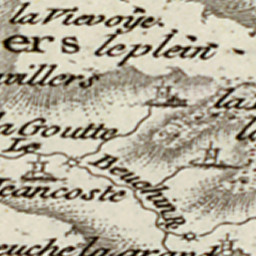 la Vievoÿe.
ers le plein -
willers
la Goutte
la
Le
Beuchwick
Jeancoste
euche la grand